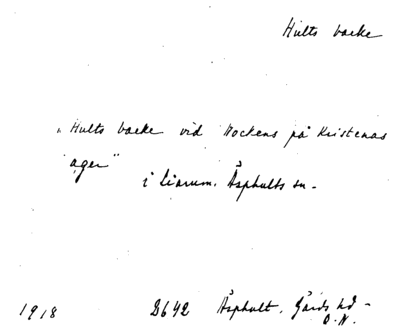 Hults backe
„Hults backe vid Nockens på Kristenas
ager"
i Linrum. Äsphults sn.
1918 2642 Äsphult. Gärds hd.
O.N.